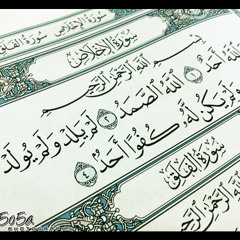 سُورَةُ الإِخْلَاصِ
سُورَةُ الفَلَقِ
سُورَةُ الإِخْلَاصِ
بِسْمِ ٱللَّهِ ٱلرَّحْمَٰنِ ٱلرَّحِيمِ
ٱللَّهُ أَحَدٌ ١ ٱللَّهُ ٱلصَّمَدُ ٢ لَمْ يَلِدْ وَلَمْ يُولَدْ
وَلَمْ يَكُن لَّهُۥ كُفُوًا أَحَدٌۢ ٤
سُورَةُ الفَلَقِ
ٱللَّهِ ٱلرَّحْمَٰنِ ٱلرَّحِيمِ